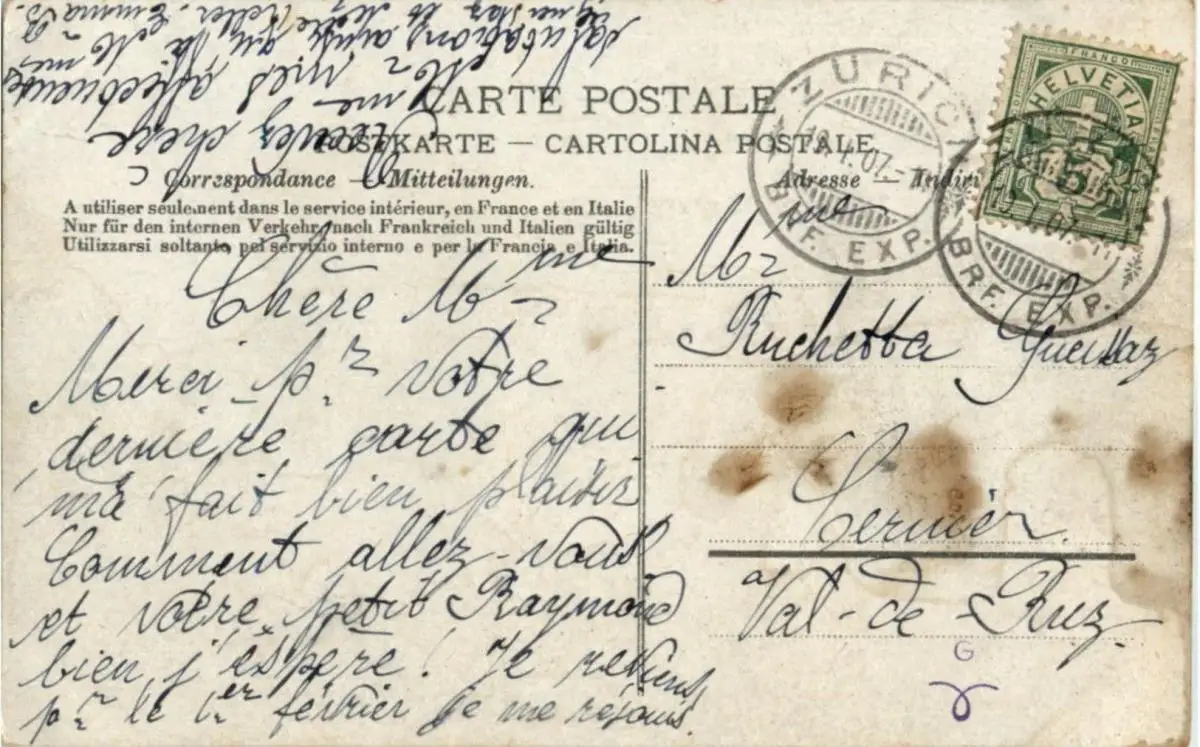 CARTE POSTALE
POSTKARTE — CARTOLINA POSTALE.
Correspondance — Mitteilungen.
A utiliser seulement dans le service intérieur, en France et en Italie
Nur für den internen Verkehr, nach Frankreich und Italien gültig
Utilizzarsi soltanto pel servizio interno e per la Francia e Italia.
Chère Mme
Merci pr votre
dernière carte qui
m'a fait bien plaisir
Comment allez-vous
et votre petit Raymond
bien j'éspère! Je reviens
pr le 1er février je me réjouis.
Recevez chère
Mme mes affectueuses
salutations ainsi qu'à Mr
Keller. Emma B.
Adresse — Indiri
Mme
Ruchetta Guettaz
Cernier.
Val-de-Ruz
G
ZÜRICH
18.I.07.
BRF. EXP.
FRANCO
HELVETIA
5
BRF. EXP.